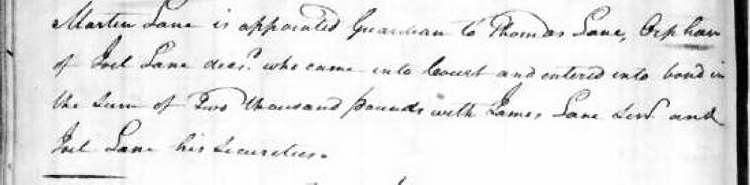 Martin Lane is appointed Guardian to Thomas Lane, Orphan
of Joel Lane decsd. who came into Court and entered into bond in
the sum of Two thousand pounds with James Lane Senr and
Joel Lane his securities.